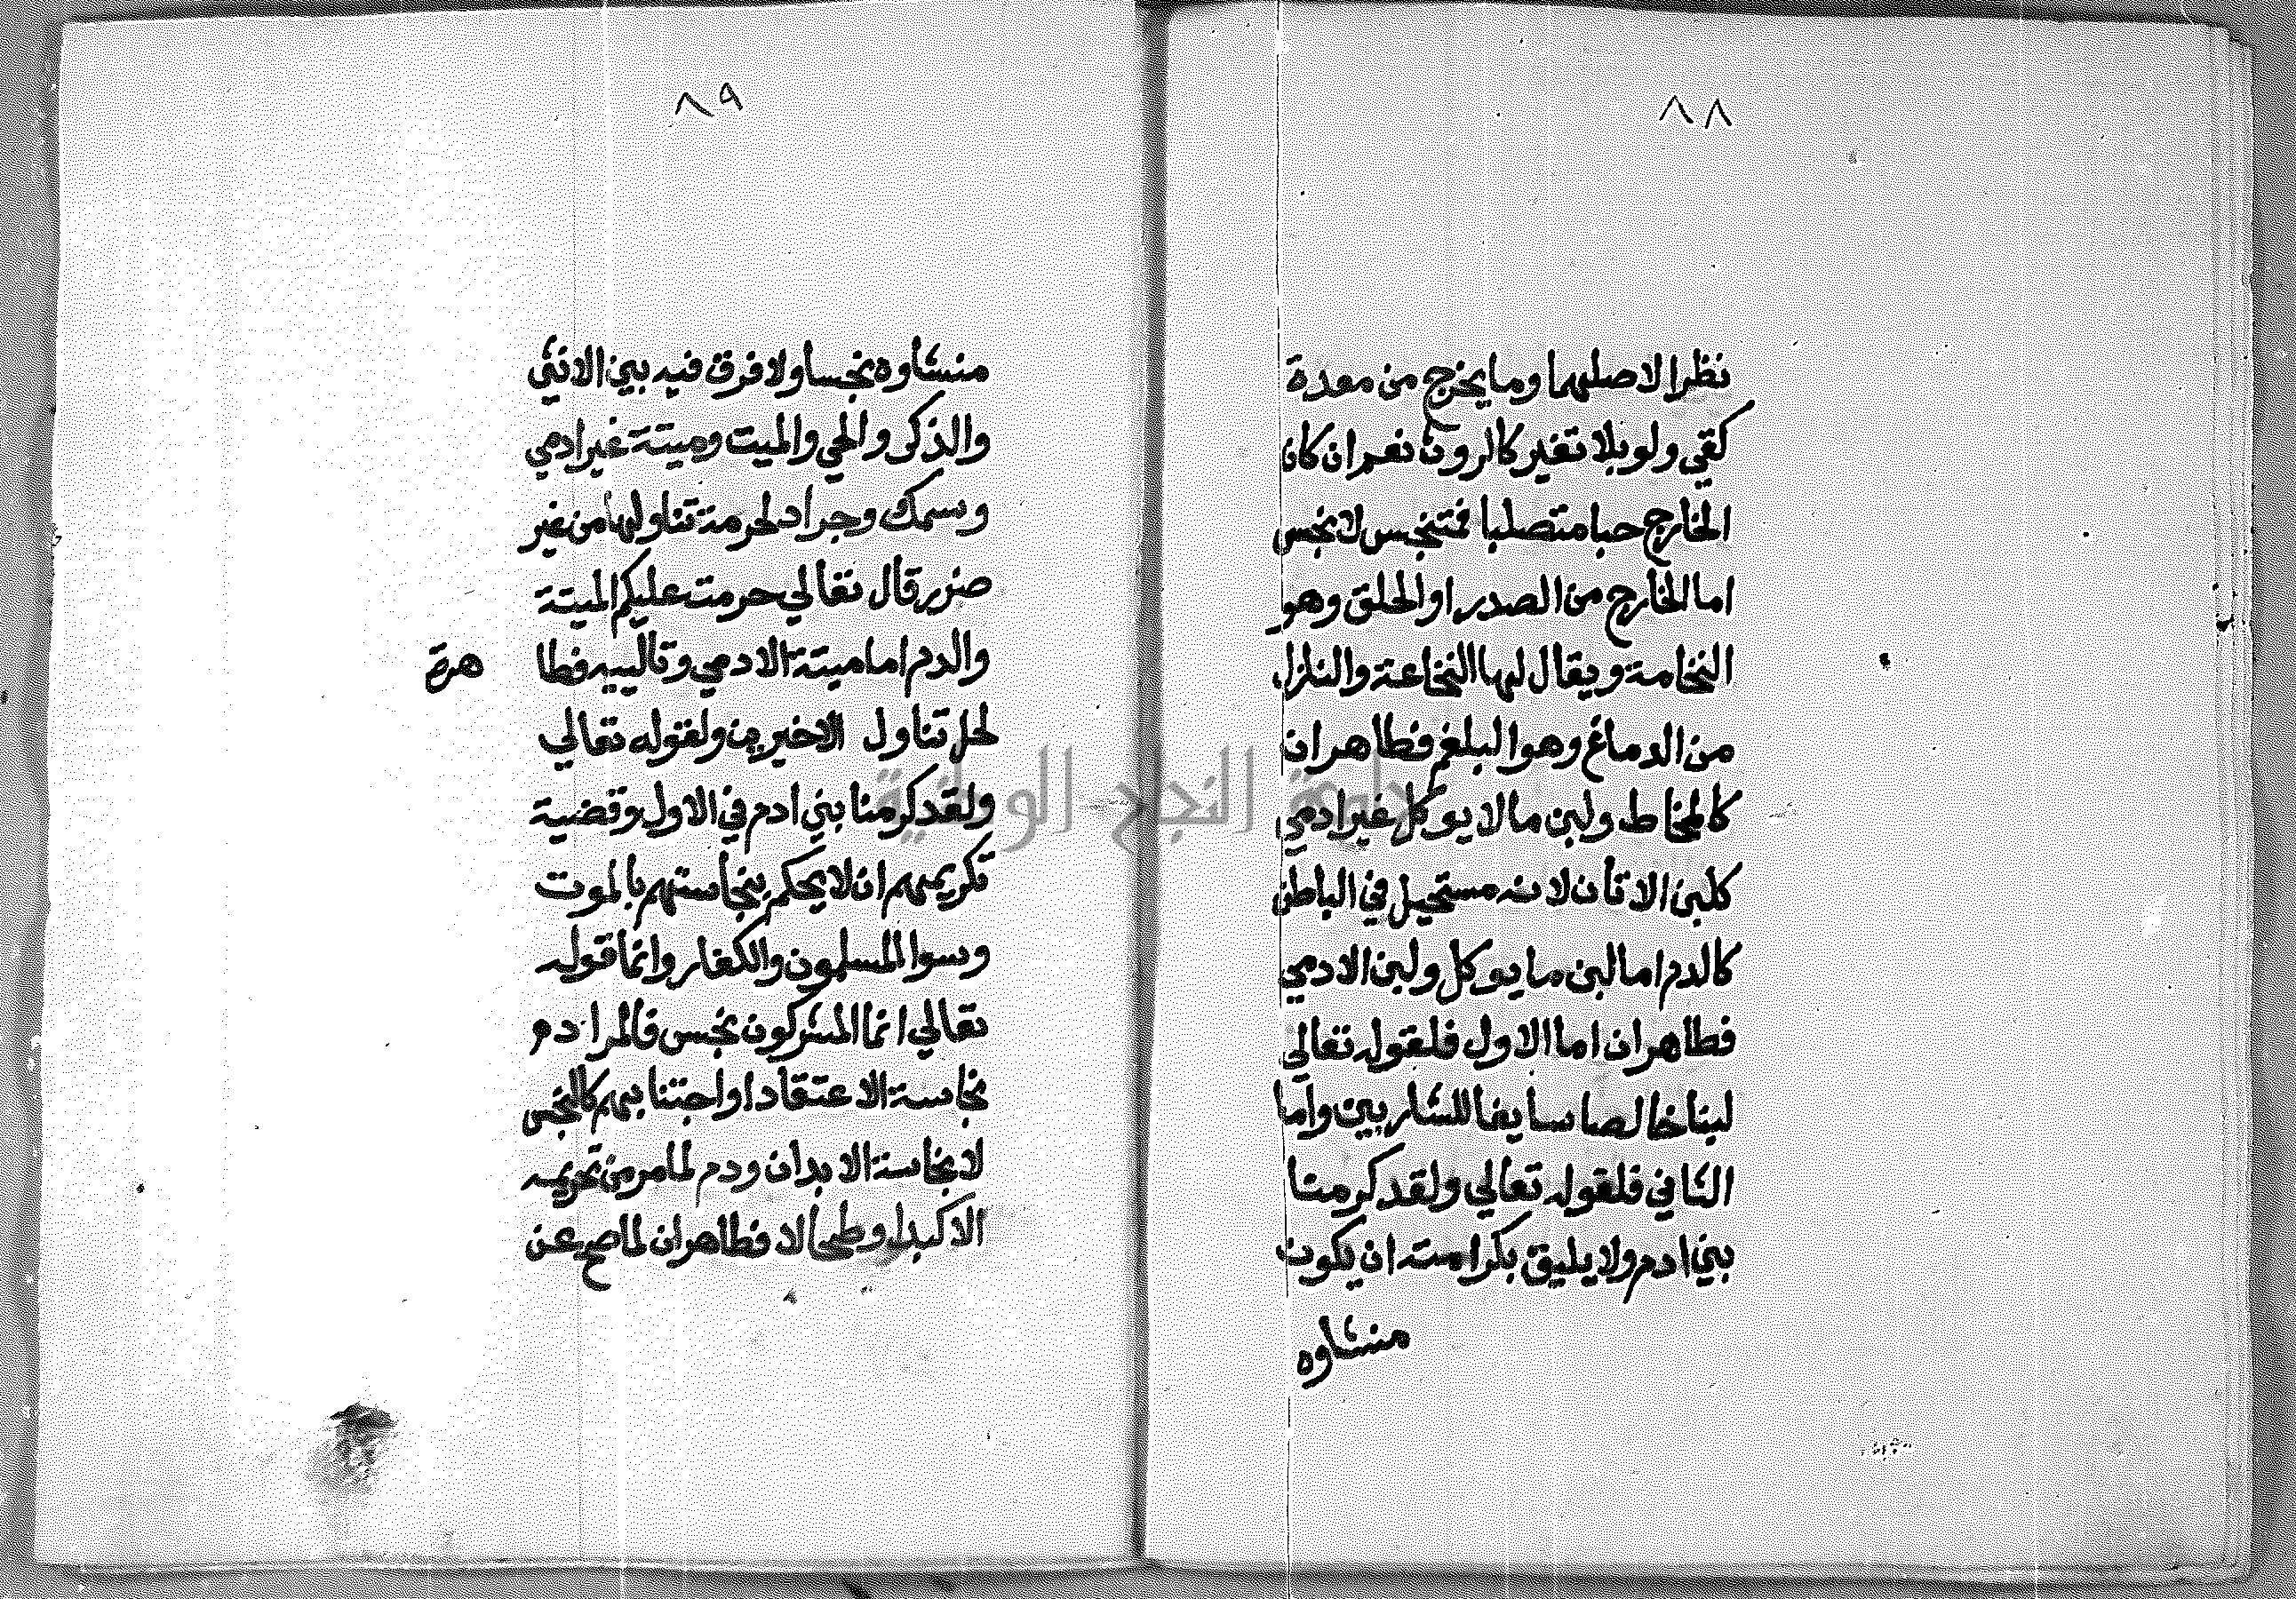 ٨٨
نظرا لاصلهما وما يخرج من معدة
كقي ولو بلا تغير كالروث نعم ان كان
الخارج حبا متصلبا فمتنجس لا نجس
اما الخارج من الصدر او الحلق وهو
النخامة ويقال لها النخاعة والنازل
من الدماغ وهو البلغم فطاهران
كالمخاط ولبن ما لا يوكل غير ادمي
كلبن الاتان لانه مستحيل في الباطن
كالدم اما لبن ما يوكل ولبن الادمي
فطاهران اما الاول فلقوله تعالي
لبنا خالصا سايغا للشاربين واما
الثاني فلقوله تعالي ولقد كرمنا
بني ادم ولا يليق بكرامته ان يكون
منشاوه
٨٩
منشاوه نجسا ولا فرق فيه بين الانثي
والذكر والحي والميت وميتة غير ادمي
وسمك وجراد لحرمة تناولها من غير
ضرر قال تعالي حرمت عليكم الميتة
والدم اما ميتة الادمي وتالييه فطا
هرة
لحل تناول الاخيرين ولقوله تعالي
ولقد كرمنا بني ادم في الاول وقضية
تكريمهم ان لا يحكم بنجاستهم بالموت
وسوا المسلمون والكفار وانما قوله
تعالي انما المشركون نجس فالمراد م
نجاسة الاعتقاد او اجتنابهم كالنجس
لا نجاسة الابدان ودم لما مر من تحريمه
الا كبدا وطحالا فطاهران لما صح عن
جامعة النجاح الوطنية